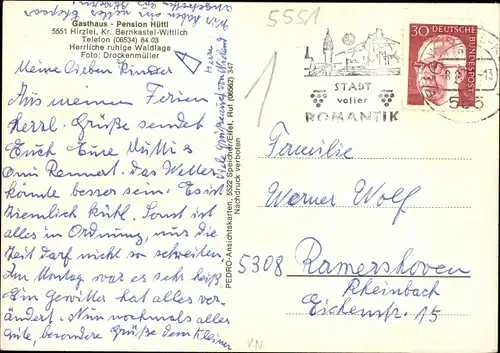 Gasthaus - Pension Hüttl
5551 Hirzlei, Kr. Bernkastel-Wittlich
Telefon (06534) 84 03
Herrliche ruhige Waldlage
Foto: Drockenmüller
Meine lieben Kinder
Aus meinen Ferien,
Herrl. Grüße sendet
Euch Eure Mutti u
Omi Rennert. Das Wetter
könnte besser sein. Es ist
ziemlich kühl. Sonst ist
alles in Ordnung, nur die
Zeit darf nicht so schreiten.
Am Montag war es sehr heiß.
Ein Gewitter hat alles ver-
ändert. Nun nochmals alles
Gute, besondere Grüße dem Kleinen
Viele Grüße
PEDRO-Ansichtskarten, 5522 Speicher/Eifel, Ruf (06562) 347
Nachdruck verboten
5551
STADT
voller
ROMANTIK
30
DEUTSCHE
BUNDESPOST
-13
Familie
Werner Wolf
5308 Ramershoven
Rheinbach
Eichenstr. 15